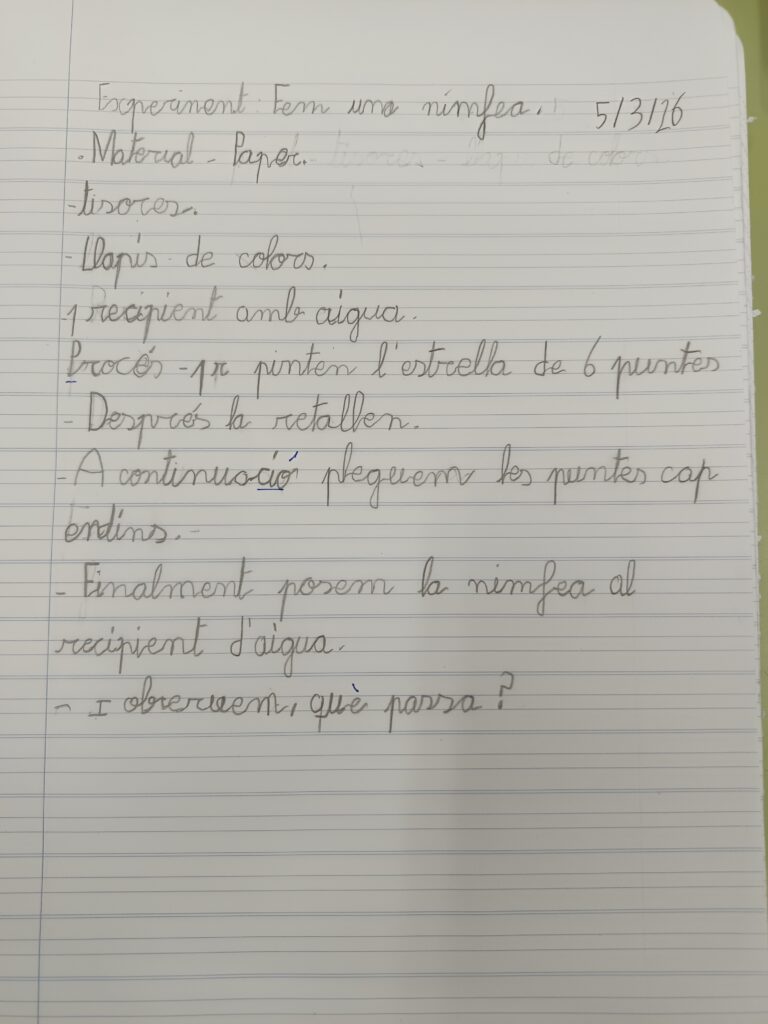 Experiment: Fem una nimfea. 5/3/26
. Material - Paper.
- tisores.
- Llapis de colors.
- 1 recipient amb aigua.
Procés - 1r pinten l'estrella de 6 puntes
- Després la retallen.
- A continuació pleguem les puntes cap
endins. -
- Finalment posem la nimfea al
recipient d'aigua.
- I observem, què passa?